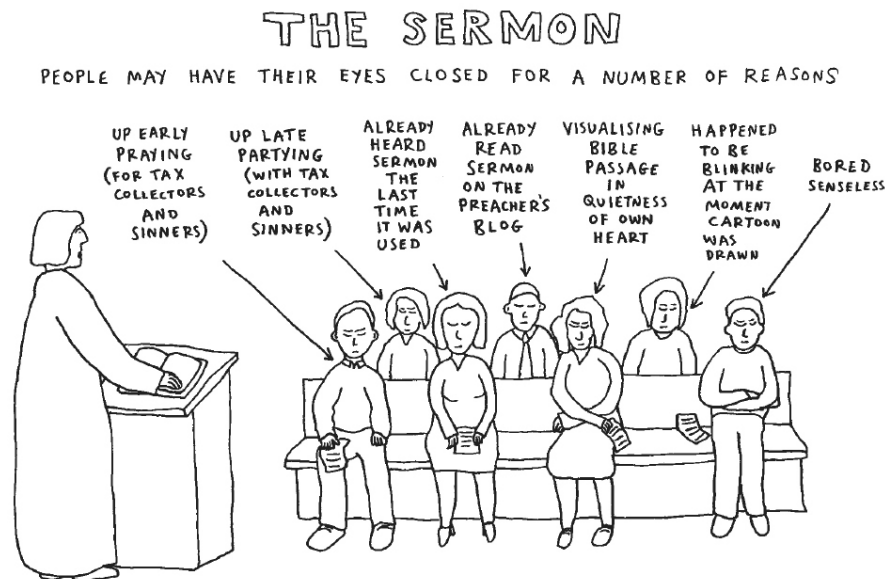 THE SERMON
PEOPLE MAY HAVE THEIR EYES CLOSED FOR A NUMBER OF REASONS
UP EARLY
PRAYING
(FOR TAX
COLLECTORS
AND
SINNERS)
UP LATE
PARTYING
(WITH TAX
COLLECTORS
AND
SINNERS)
ALREADY
HEARD
SERMON
THE
LAST
TIME
IT WAS
USED
ALREADY
READ
SERMON
ON THE
PREACHER'S
BLOG
VISUALISING
BIBLE
PASSAGE
IN
QUIETNESS
OF OWN
HEART
HAPPENED
TO BE
BLINKING
AT THE
MOMENT
CARTOON
WAS
DRAWN
BORED
SENSELESS